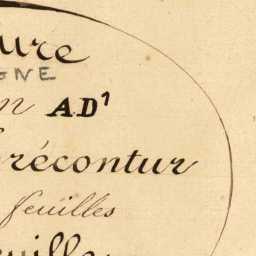 ure
GNE
n AD¹
récontur
feuilles